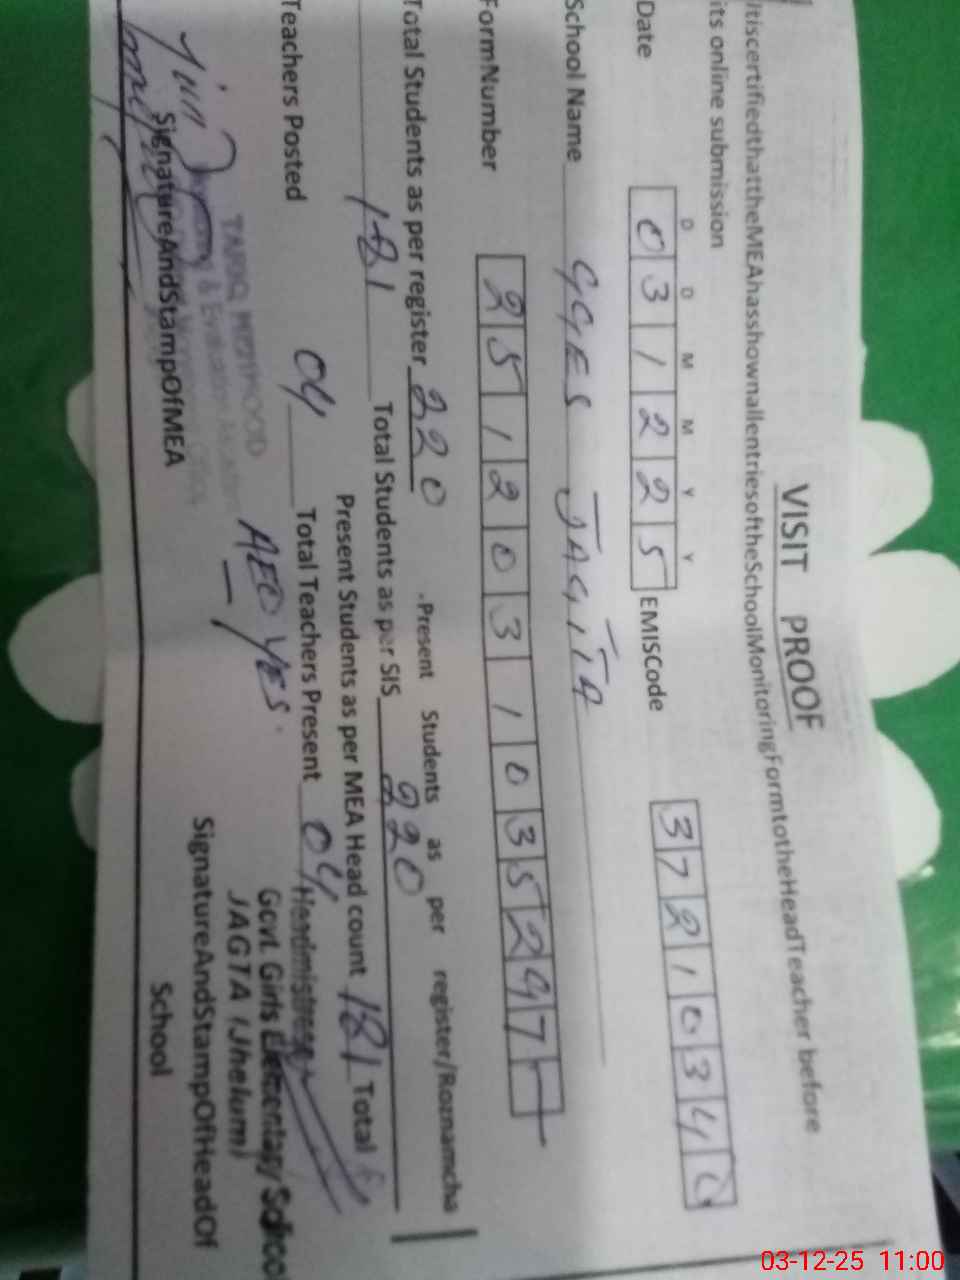 VISIT PROOF
ItiscertifiedthattheMEAhasshownallentriesoftheSchoolMonitoringFormtotheHeadTeacher before
its online submission
D D M M Y Y
Date 031225 EMISCode 3721034
School Name GGES JAGTTA
FormNumber 251203103529
Total Students as per register 220 .Present Students as per register/Roznamcha
181 Total Students as per SIS 220
Present Students as per MEA Head count 181 Total
Teachers Posted 04 Total Teachers Present 04
AEO Yes.
Headmistress
Govt. Girls Elementary School
JAGTA (Jhelum)
TARIQ MEHMOOD
Monitoring & Evaluation Assistant
SignatureAndStampOfMEA SignatureAndStampOfHeadOf
School
03-12-25 11:00